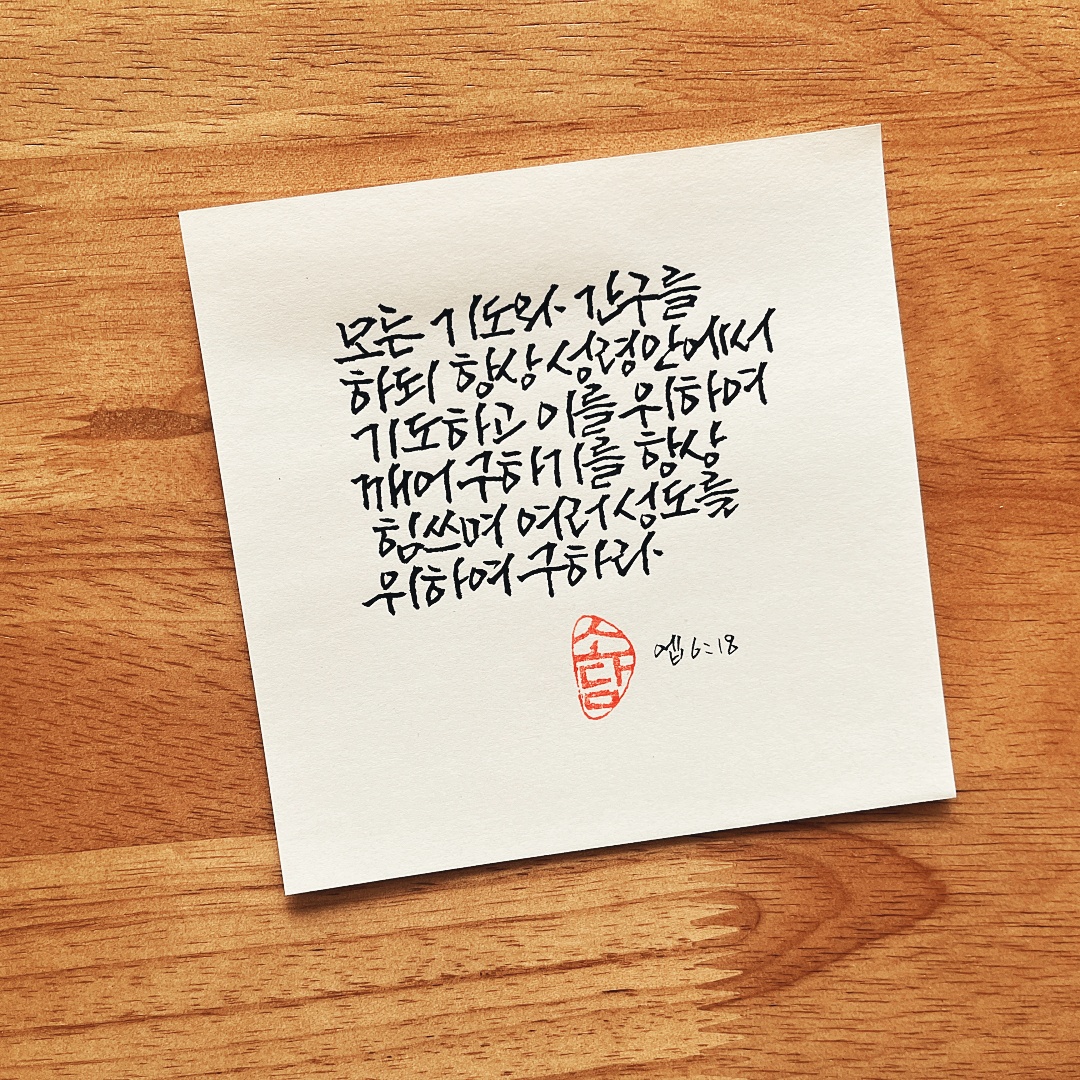 모든 기도와 간구를
하되 항상 성령안에서
기도하고 이를 위하여
깨어 구하기를 항상
힘쓰며 여러 성도를
위하여 구하라
소담
엡 6:18